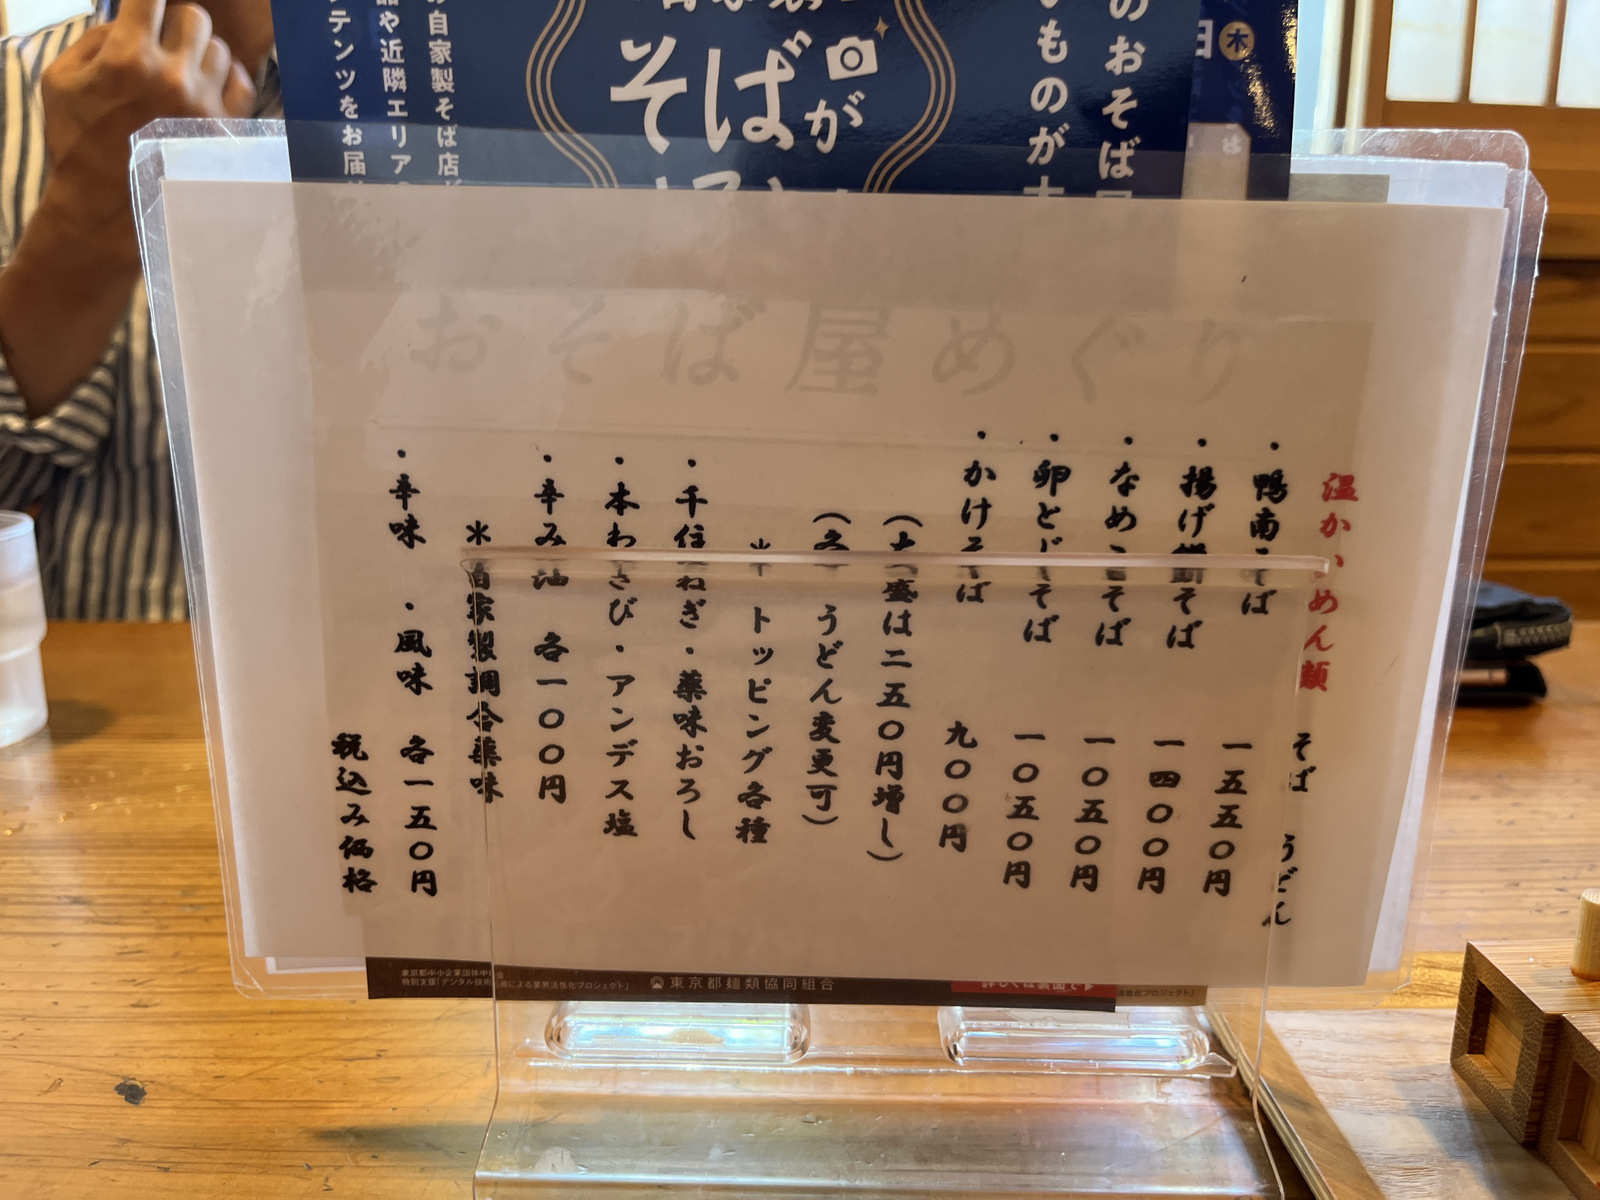 のおそば
いものが
そばが
自家製そば店
や近隣エリア
テンツをお届
木
おそば屋めぐり
温かいめん類 そば うどん
・鴨南そば 一五五〇円
・揚げ餅そば 一四〇〇円
・なめこそば 一〇五〇円
・卵とじそば 一〇五〇円
・かけそば 九〇〇円
(大盛は二五〇円増し)
(各 うどん変更可)
* トッピング各種
・千住ねぎ・薬味おろし
・本わさび・アンデス塩
・辛み油 各一〇〇円
*自家製調合薬味
・辛味 ・風味 各一五〇円
税込み価格
東京都中小企業団体中
特別支援「デジタル技術活用による業界活性化プロジェクト」
東京都麺類協同組合
詳しくは裏面で▶
性化プロジェクト」